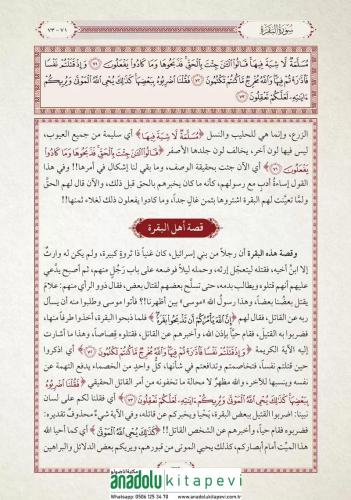 سورة البقرة ٧١ - ٧٣
مُسَلَّمَةٌ لَّا شِيَةَ فِيهَا قَالُوا الْـَٰٔنَ جِئْتَ بِالْحَقِّ فَذَبَحُوهَا وَمَا كَادُوا يَفْعَلُونَ ٧١ وَإِذْ قَتَلْتُمْ نَفْسًا
فَادَّارَأْتُمْ فِيهَا وَاللَّهُ مُخْرِجٌ مَّا كُنتُمْ تَكْتُمُونَ ٧٢ فَقُلْنَا اضْرِبُوهُ بِبَعْضِهَا كَذَٰلِكَ يُحْيِ اللَّهُ الْمَوْتَىٰ وَيُرِيكُمْ
ءَايَٰتِهِ لَعَلَّكُمْ تَعْقِلُونَ ٧٣
الزرع، وإنما هي للحليب والنسل ﴿مُسَلَّمَةٌ لَّا شِيَةَ فِيهَا﴾ أي سليمة من جميع العيوب،
ليس فيها لون آخر، يخالف لون جلدها الأصفر ﴿قَالُوا الْـَٰٔنَ جِئْتَ بِالْحَقِّ فَذَبَحُوهَا وَمَا كَادُوا
يَفْعَلُونَ ٧١﴾ أي الآن جئت بحقيقة الوصف، وما بقي لنا إشكال في أمرها!! وفي هذا
القول إساءة أدبٍ مع رسولهم، كأنه ما كان يخبرهم بالحق قبل ذلك، والآن قال لهم الحق
ولمَّا تعيَّنت لهم البقرة اشتروها بثمن غالٍ جداً، وما كادوا يفعلون ذلك لغلاء ثمنها!!
قصة أهل البقرة
وقصة هذه البقرة أن رجلاً من بني إسرائيل، كان غنياً ذا ثروة كبيرة، ولم يكن له وارثٌ
إلا ابنُ أخيه، فقتله ليتعجَّل إرثه، وحمله ليلاً فوضعه على باب رَجُلٍ منهم، ثم أصبح يدَّعي
عليهم أنهم قتلوه ويطالب بدمه، حتى تسلَّح بعضهم لقتال بعض، فقال ذوو الرأي منهم: علامَ
يقتل بعضُنا بعضاً، وهذا رسول الله «موسى» بين أظهرنا!؟ فأتوا موسى وطلبوا منه أن يسأل
ربه عن القاتل، فقال لهم ﴿إِنَّ اللَّهَ يَأْمُرُكُمْ أَن تَذْبَحُوا بَقَرَةً﴾ فلما ذبحوا البقرة، أخذوا طرفاً منها،
فضربوا به القتيل، فقام حيّاً بإذن الله، وأخبرهم عن القاتل، فقتلوه قِصاصاً، وهذا ما أشارت
إليه الآية الكريمة ﴿وَإِذْ قَتَلْتُمْ نَفْسًا فَادَّارَأْتُمْ فِيهَا وَاللَّهُ مُخْرِجٌ مَّا كُنتُمْ تَكْتُمُونَ ٧٢﴾ أي اذكروا
حين قتلتم نفساً، فتخاصمتم وتدافعتم في شأنها، كلُّ واحدٍ من الخصماء يدفع التهمة عن
نفسه وينسبها للآخر، والله مظهرٌ لا محالة ما تخفونه من أمر القاتل الحقيقي ﴿فَقُلْنَا اضْرِبُوهُ
بِبَعْضِهَا كَذَٰلِكَ يُحْيِ اللَّهُ الْمَوْتَىٰ وَيُرِيكُمْ ءَايَٰتِهِ لَعَلَّكُمْ تَعْقِلُونَ ٧٣﴾ أي فقلنا لكم على لسان
نبينا: اضربوا القتيل ببعض البقرة، يَحْيا ويخبركم عن قاتله، وفي الآية شيءٌ محذوفٌ تقديره:
فضربوه فقام حياً، وأخبرهم عن الشخص القاتل!! ﴿كَذَٰلِكَ يُحْيِ اللَّهُ الْمَوْتَىٰ﴾ أي كما أحيا الله
هذا الميِّت أمام أبصاركم، كذلك يحيي الموتى من قبورهم، ويريكم بعض الدلائل والبراهين
anadolukitapevi
Whatsapp: 0506 125 34 70 www.anadolukitapevi.com